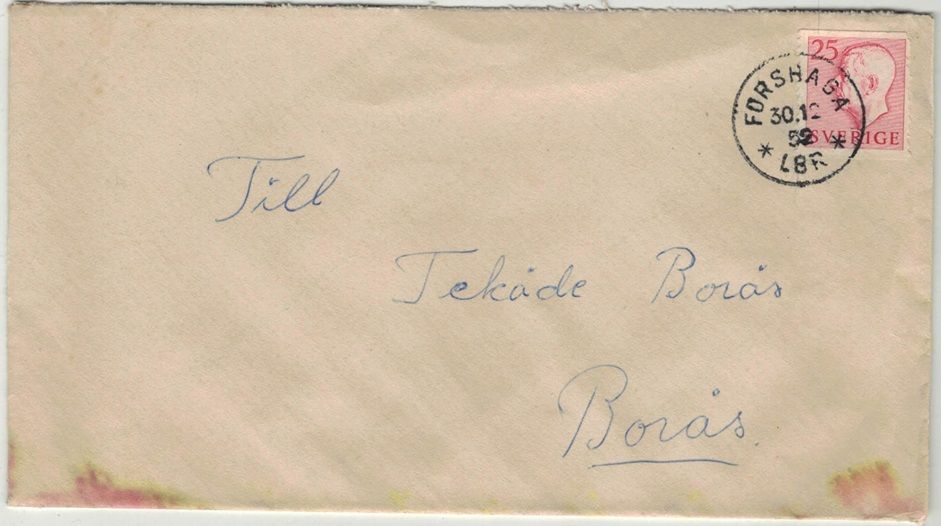 25
SVERIGE
FORSHAGA
30.12
52
* LBR *
Till
Tekåde Borås
Borås.